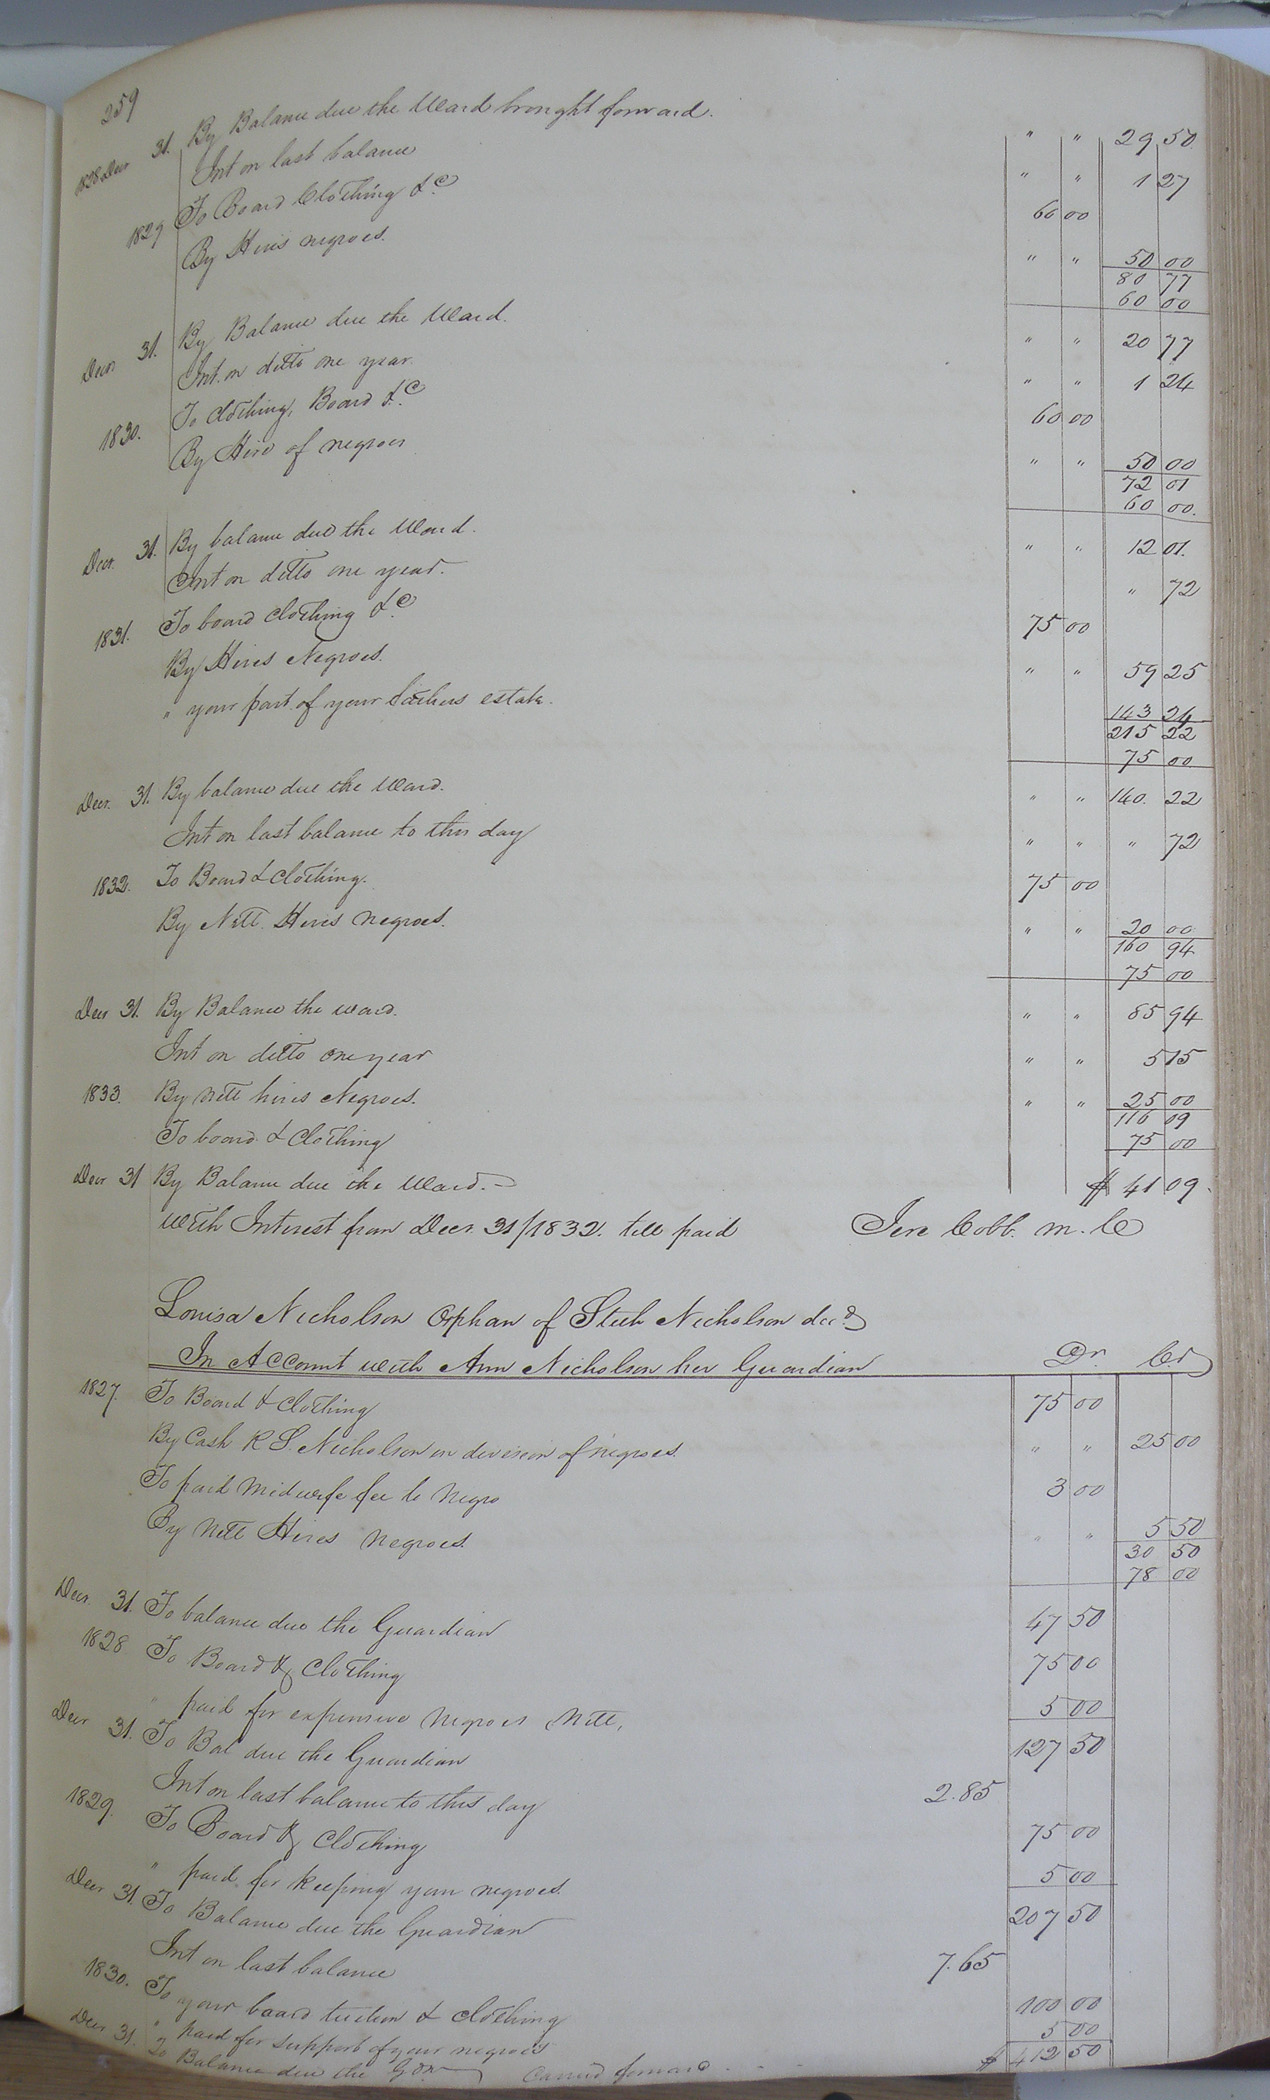 259
1828 Decr 31. By Balance due the Ward brought forward. " " 29 50
Int on last balance " " 1 27
1829 To Board Clothing &c 60 00
By Hires negroes. " " 50 00
80 77
60 00
Decr 31. By Balance due the Ward. " " 20 77
Int. on ditto one year. " " 1 24
1830. To Clothing, Board &c 60 00
By Hire of negroes " " 50 00
72 01
60 00.
Decr. 31. By balance due the Ward. " " 12 01.
Int on ditto one year. " 72
1831. To board clothing &c 75 00
By Hires Negroes. " " 59 25
" your part of your fathers estate. 143 24
215 22
75 00
Decr. 31. By balance due the Ward. " " 140. 22
Int on last balance to this day " " " 72
1832. To Board & Clothing. 75 00
By Nett Hires negroes. " " 20 00
160 94
75 00
Decr 31. By Balance the ward. " " 85 94
Int on ditto one year " " 5 15
1833. By nett hires Negroes. " " 25 00
116 09
To board & Clothing 75 00
Decr 31 By Balance due the Ward. $ 41 09.
With Interest from Decr. 31/1832. till paid Jere Cobb. m. C
Louisa Nicholson Orphan of Nicholson decd
In Account with Ann Nicholson her Guardian Dr. Cr
1827. To Board & Clothing 75 00
By Cash R S. Nicholson in division of negroes. " " 25 00
To paid midwife fee to Negro 3 00
By Nett Hires negroes. " " 5 50
30 50
78 00
Decr. 31. To balance due the Guardian 47 50
1828 To Board & Clothing 75 00
" paid for expensive Negroes Nett, 5 00
Decr 31. To Bal due the Guardian 127 50
Int on last balance to this day 2.85
1829. To Board & Clothing 75 00
" paid for keeping your negroes. 5 00
Decr 31. To Balance due the Guardian 207 50
Int on last balance 7.65
1830. To your board tuition & clothing 100 00
" paid for support of your negroes 5 00
Decr 31. To Balance due the Gdn Carried forward $ 412 50